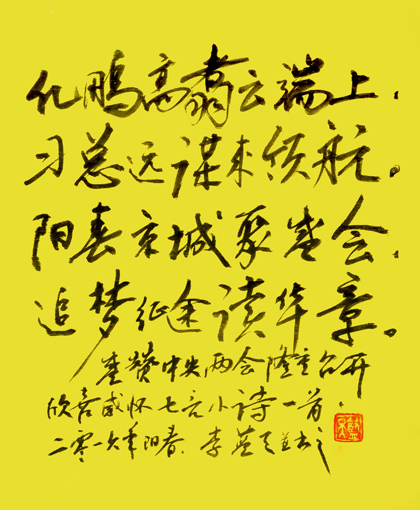 化鹏高翥云端上,
习总远谋来领航。
阳春京城聚盛会,
追梦征途读华章。
盛赞中央两会隆重召开
欣喜感怀七言小诗一首。
二零一六年阳春 李英天并书之